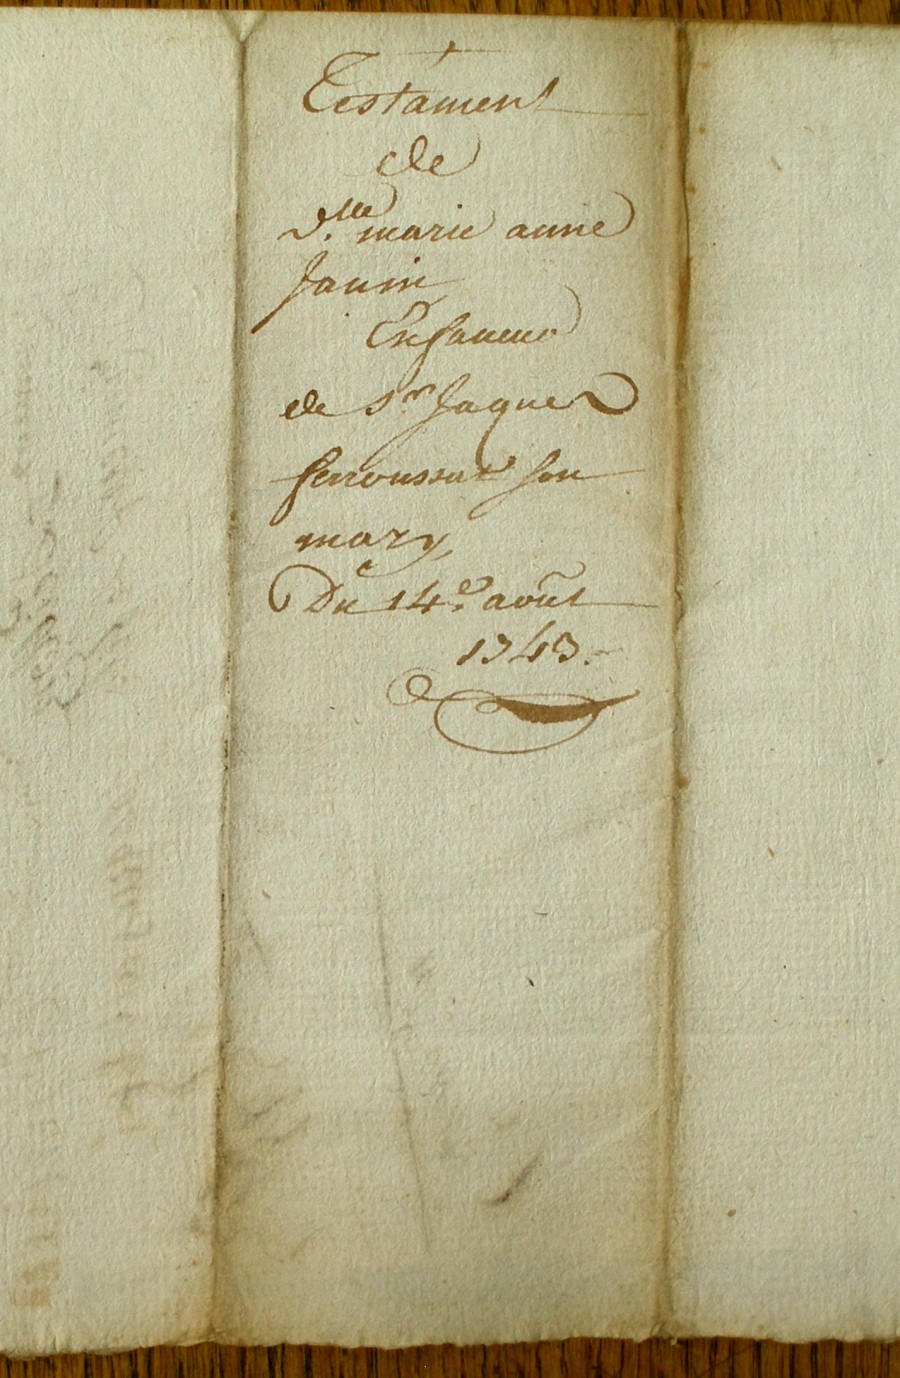 Testament
de
d.lle marie anne
Janin
En faveur
de Sr. Jaques
ferroussat son
mary
Du 14e. août
1743.